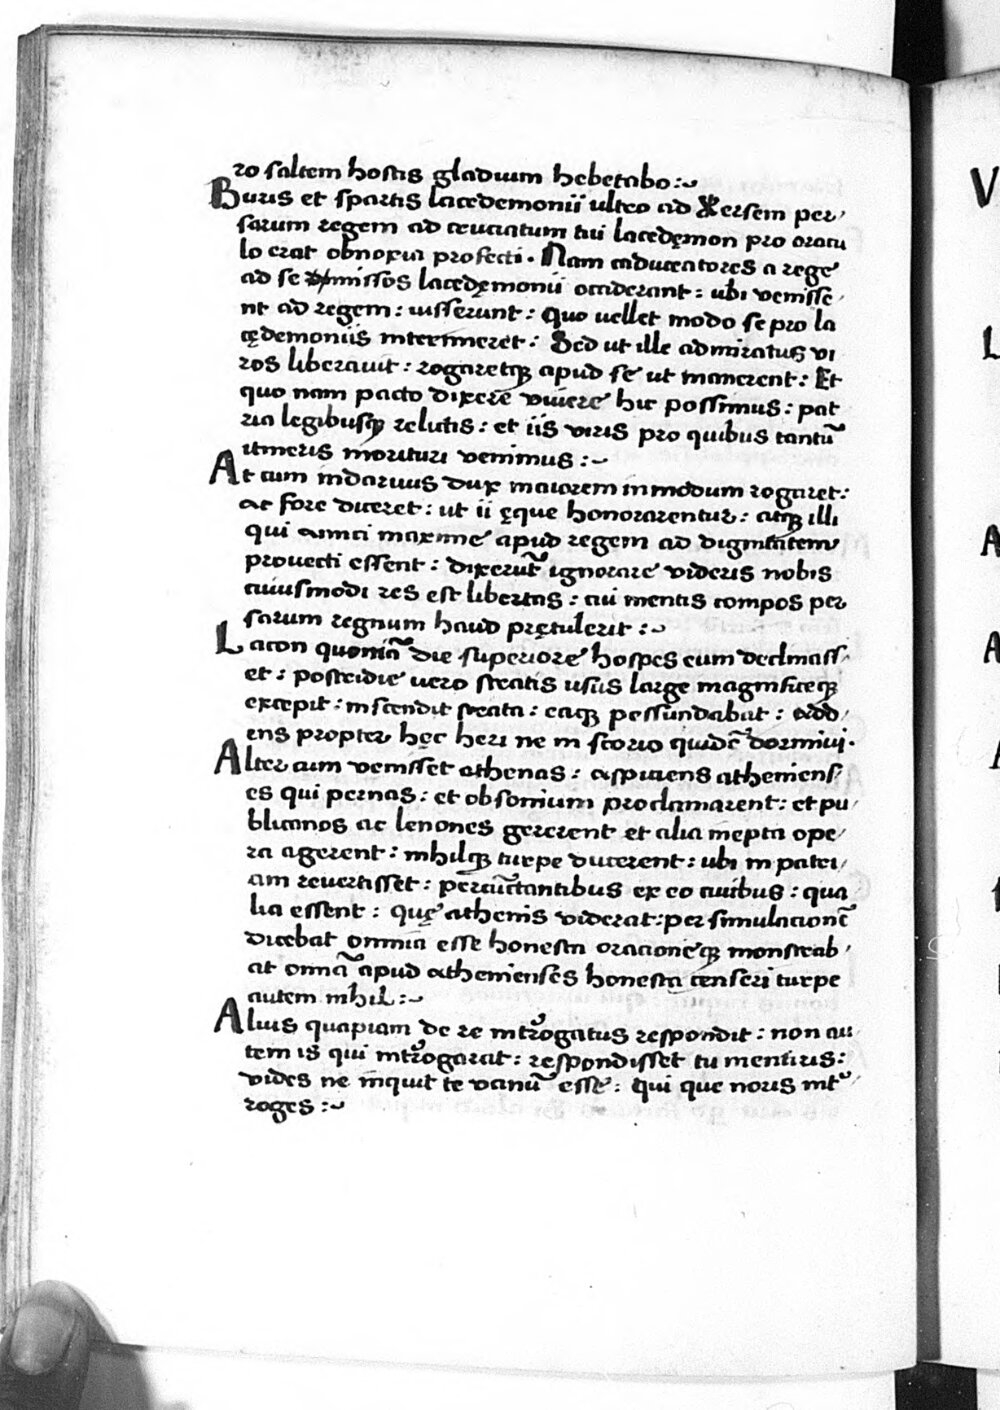 ro saltem hostis gladium hebetabo :~
Buris et spartis lacedemonii ultro ad Xersem per/
sarum regem ad cruciatum cui lacedęmon pro oracu
lo erat obnoxia profecti. Nam caduceatores a rege
ad se missos lacedęmonii occiderant : ubi venisse/
nt ad regem : iusserunt : Quo vellet modo se pro la
cędemoniis interimeret : Sed ut ille admiratus vi
ros liberavit : rogaretq apud se ut manerent : Et
quo nam pacto dixere vivere hic possimus : pat
ria legibusq relictis : et iis viris pro quibus tantū
itineris morituri venimus :~
At cum indarnus dux maiorem in modum rogaret :
ac fore diceret : ut ii ęque honorarentur : atq illi
qui amici maxime apud regem ad dignitatem
provecti essent : dixerūt ignorare videris nobis
cuiusmodi res est libertas : cui mentis compos per
sarum regnum haud prętulerit :~
Lacon quoniā die superiore hospes eum declinass/
et : postridie vero stratis usus large magnificeq
excepit : inscendit strata : eaq pessundabat : add/
ens propter hęc heri ne in storio quidē dormivi.
Alter cum venisset athenas : aspiciens atheniens/
es qui pernas : et obsonium proclamarent : et pu/
blicanos ac lenones gererent et alia inepta ope/
ra agerent : nihilq turpe ducerent : ubi in patri/
am revertisset : percūctantibus ex eo civibus : qua
lia essent : quę athenis viderat : per simulacionē
dicebat omnia esse honesta oracioneq monstrab/
at omnā apud athenienses honesta censeri turpe
autem nihil :~
Alius quapiam de re introgatus respondit : non au/
tem is qui introgarat : respondisset tu mentiris :
vides ne inquit te vanū esse : qui que noris int/
roges :~
V
L
A
A